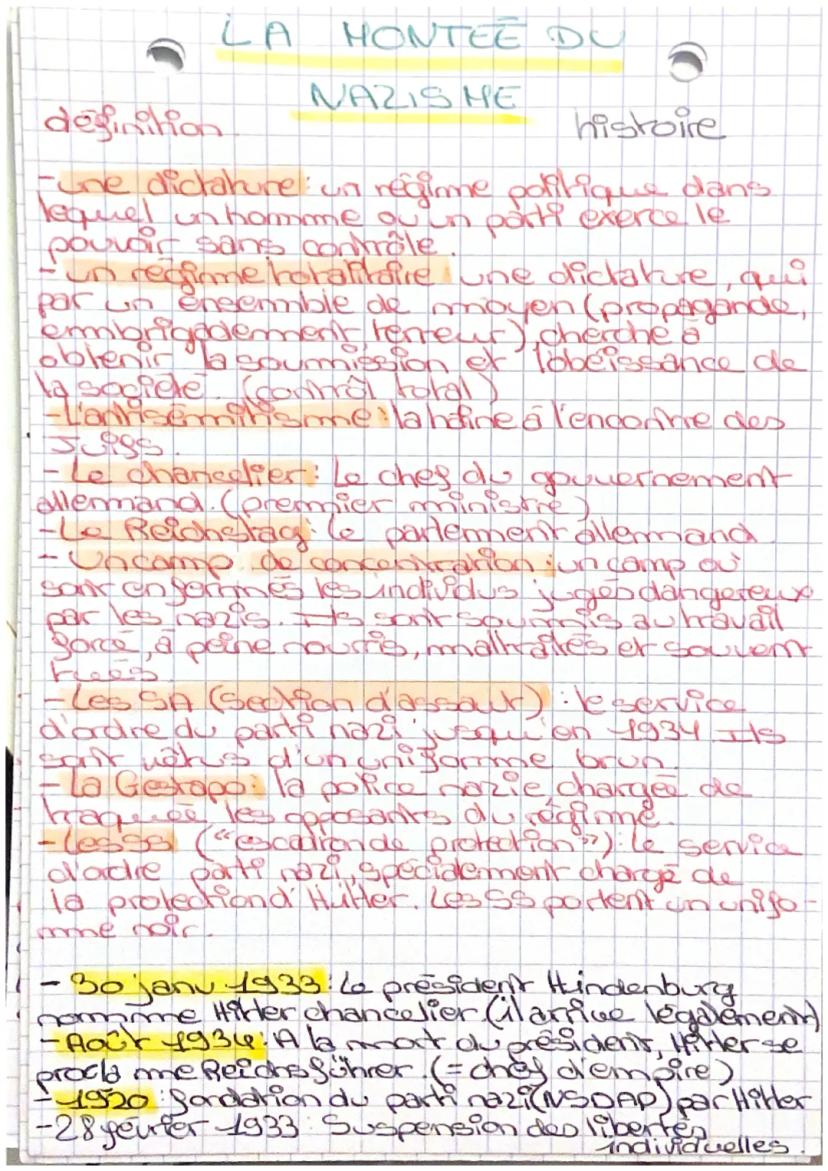 LA MONTEÉ DU
NAZISME
définition histoire
- une dictature : un régime politique dans
lequel un homme ou un parti exerce le
pouvoir sans contrôle.
- un régime totalitaire une dictature, qui
par un ensemble de moyen (propagande,
embrigadement, terreur), cherche à
obtenir la soumission et l'obéissance de
la société. (contrôl total)
- L'antisémitisme : la haine à l'encontre des
Juifs.
- Le chancelier : Le chef du gouvernement
allemand. (premier ministre)
- Le Reichstag : le parlement allemand.
- Un camp de concentration : un camp où
sont enfermés les individus jugés dangereux
par les nazis. Ils sont soumis au travail
forcé, à peine nourris, maltraités et souvent
tués.
- Les SA (section d'assaut) : le service
d'ordre du parti nazi jusqu'en 1934. Ils
sont vêtus d'un uniforme brun.
- La Gestapo : la police nazie chargée de
traquée les opposants du régime.
- Les SS ("escadron de protection") : Le service
d'odre parti nazi, spécialement chargé de
la protection d'Hitler. Les SS portent un unifo-
rme noir.
- 30 janv 1933 : Le président Hindenburg
nomme Hitler chancelier (il arrive légalement)
- Août 1934 : A la mort du président, Hitler se
proclame Reichsführer. (= chef d'empire)
- 1920 : fondation du parti nazi (NSDAP) par Hitler
- 28 février 1933 : Suspension des libertés
individuelles.